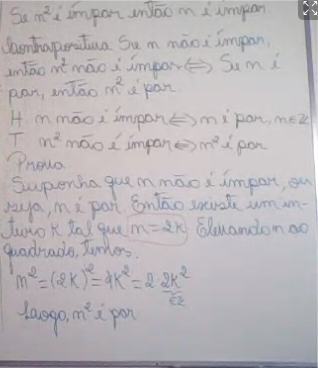 Se n² é ímpar então n é ímpar
Contrapositiva Se n não é ímpar,
então n² não é ímpar ⇔ Se n é
par, então n² é par.
H n não é ímpar ⇔ n é par, n∈Z
T n² não é ímpar ⇔ n² é par
Prova
Suponha que n não é ímpar, ou
seja, n é par. Então existe um in-
teiro K tal que n = 2k Elevando n ao
quadrado, temos.
n² = (2k)² = 4k² = 2.2k²
∈Z
Logo, n² é par